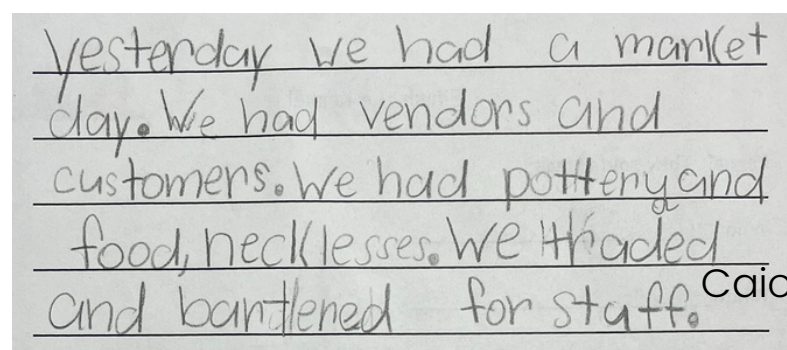 yesterday we had a market
day. We had vendors and
customers. We had pottery and
food, necklesses. We traded
and bartlered for staff.
Caio